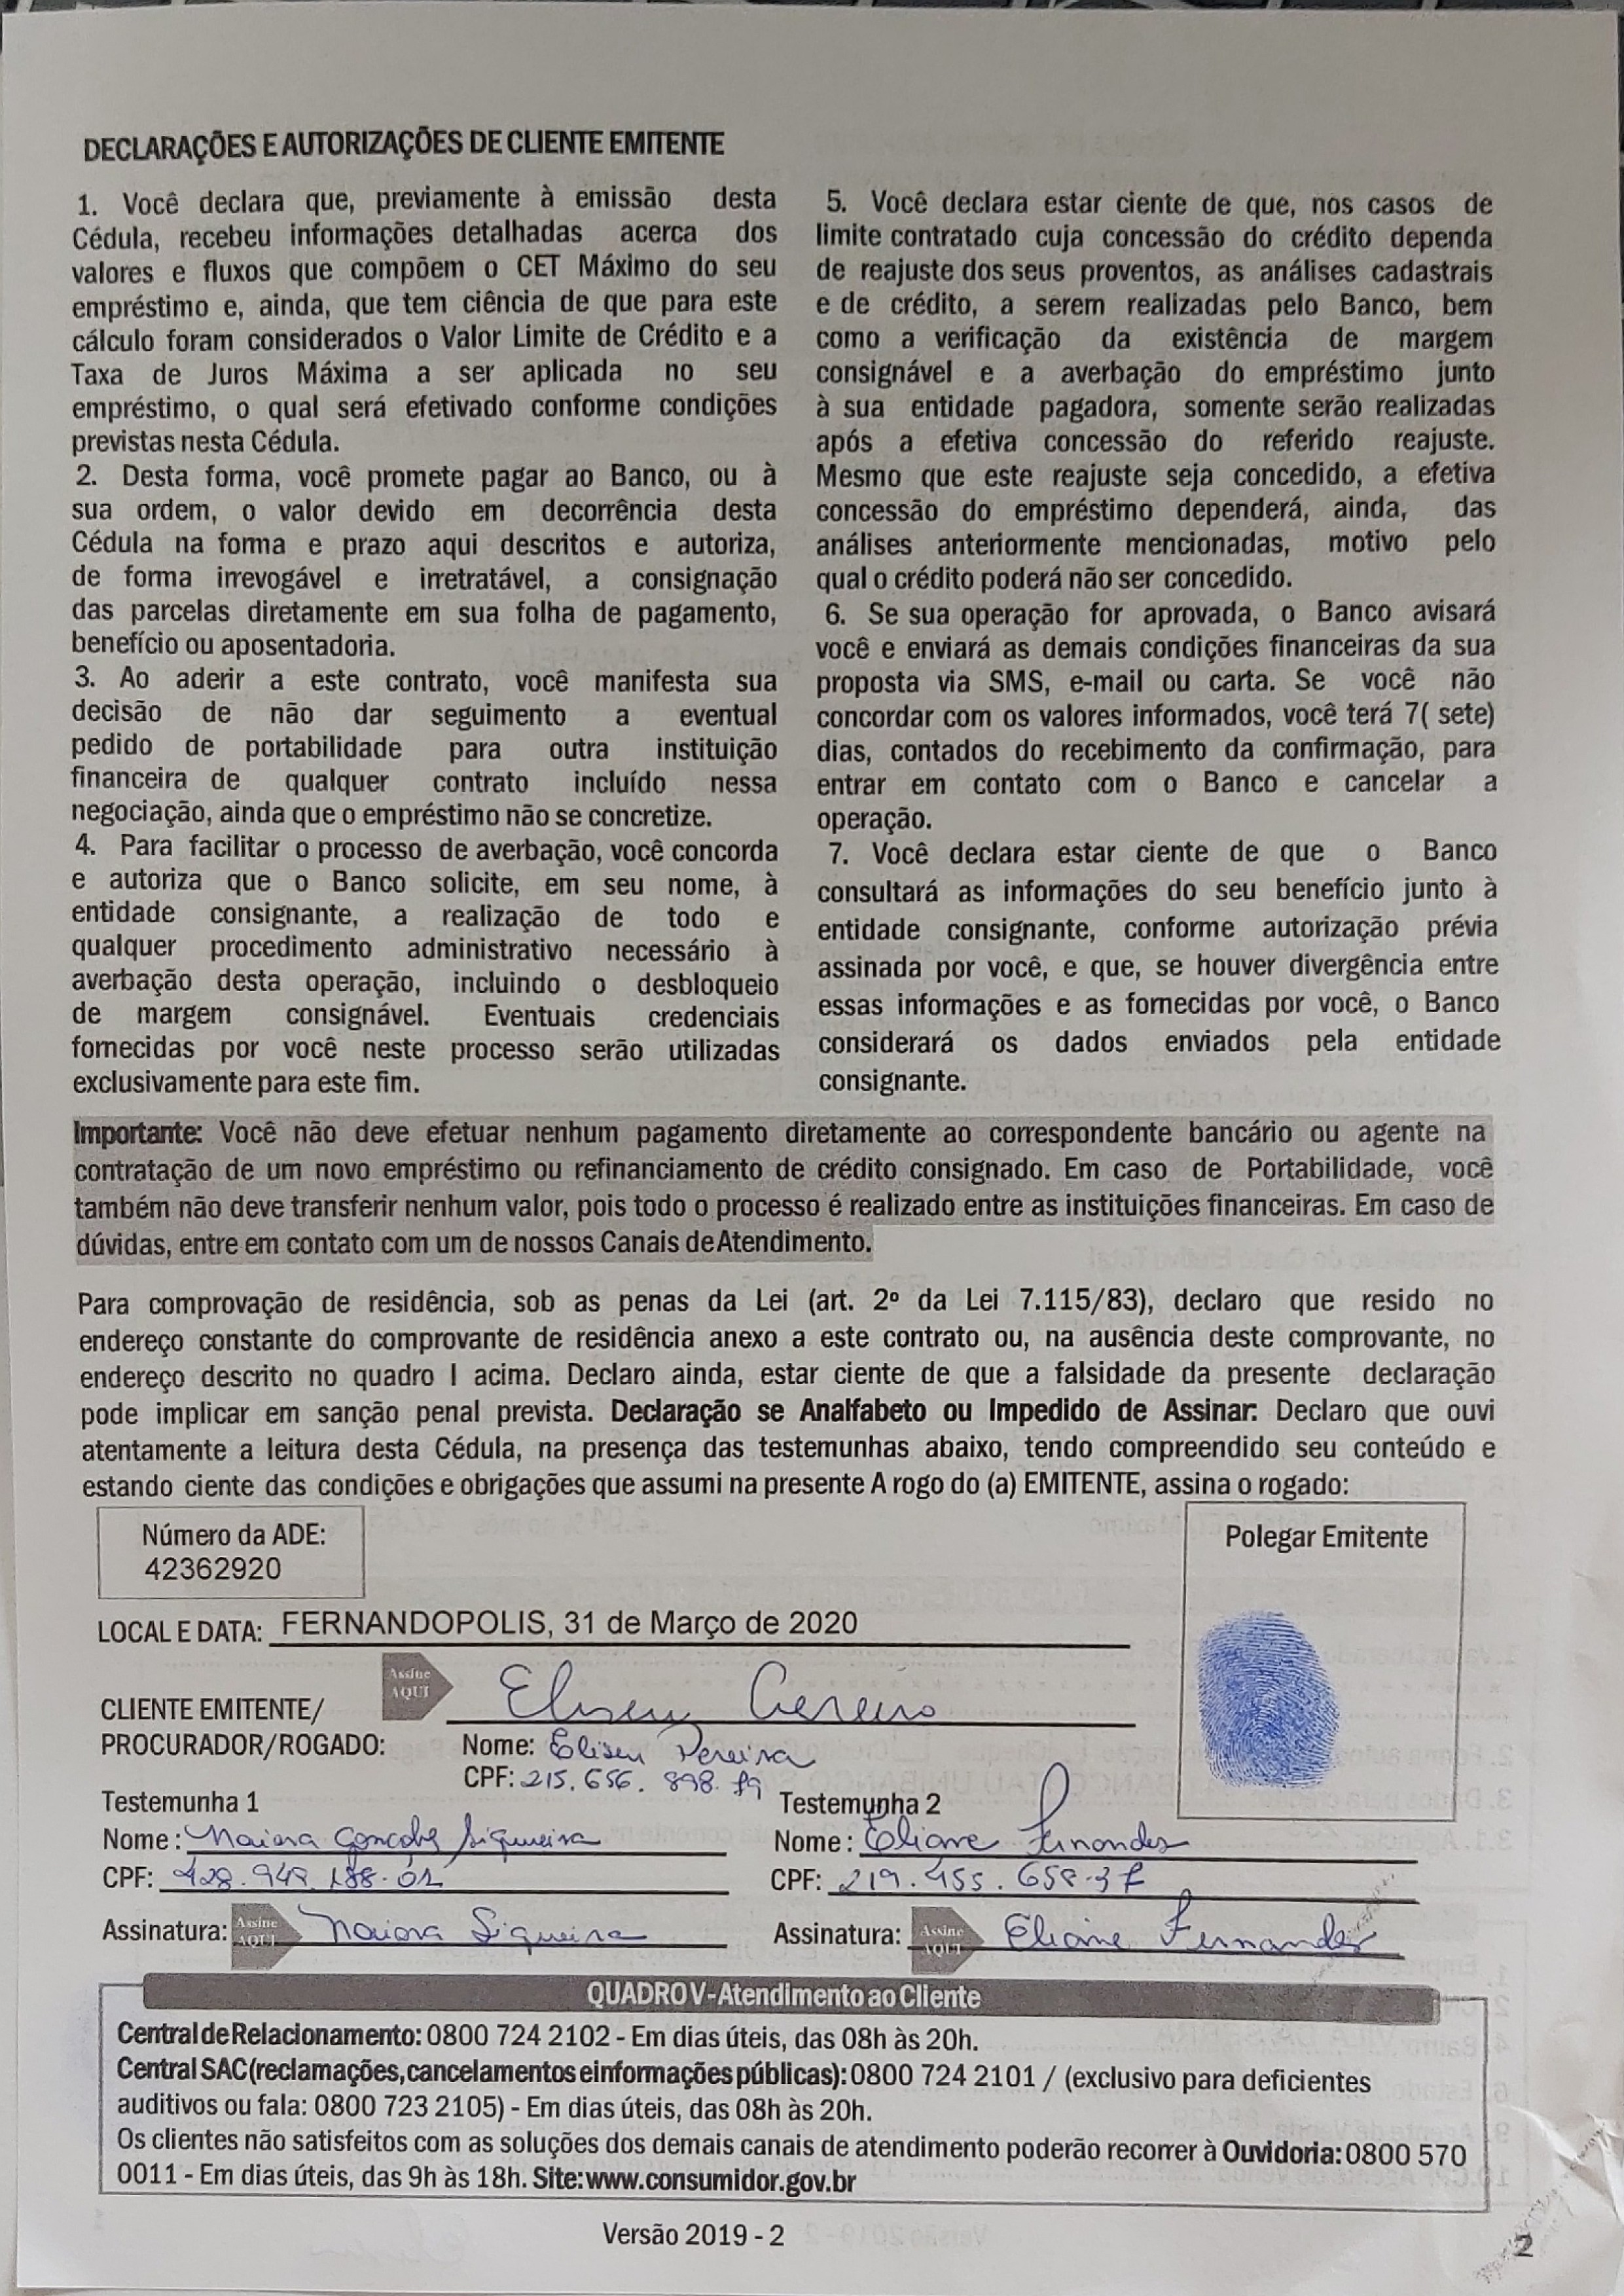 DECLARAÇÕES E AUTORIZAÇÕES DE CLIENTE EMITENTE
1. Você declara que, previamente à emissão desta
Cédula, recebeu informações detalhadas acerca dos
valores e fluxos que compõem o CET Máximo do seu
empréstimo e, ainda, que tem ciência de que para este
cálculo foram considerados o Valor Limite de Crédito e a
Taxa de Juros Máxima a ser aplicada no seu
empréstimo, o qual será efetivado conforme condições
previstas nesta Cédula.
2. Desta forma, você promete pagar ao Banco, ou à
sua ordem, o valor devido em decorrência desta
Cédula na forma e prazo aqui descritos e autoriza,
de forma irrevogável e irretratável, a consignação
das parcelas diretamente em sua folha de pagamento,
benefício ou aposentadoria.
3. Ao aderir a este contrato, você manifesta sua
decisão de não dar seguimento a eventual
pedido de portabilidade para outra instituição
financeira de qualquer contrato incluído nessa
negociação, ainda que o empréstimo não se concretize.
4. Para facilitar o processo de averbação, você concorda
e autoriza que o Banco solicite, em seu nome, à
entidade consignante, a realização de todo e
qualquer procedimento administrativo necessário à
averbação desta operação, incluindo o desbloqueio
de margem consignável. Eventuais credenciais
fornecidas por você neste processo serão utilizadas
exclusivamente para este fim.
5. Você declara estar ciente de que, nos casos de
limite contratado cuja concessão do crédito dependa
de reajuste dos seus proventos, as análises cadastrais
e de crédito, a serem realizadas pelo Banco, bem
como a verificação da existência de margem
consignável e a averbação do empréstimo junto
à sua entidade pagadora, somente serão realizadas
após a efetiva concessão do referido reajuste.
Mesmo que este reajuste seja concedido, a efetiva
concessão do empréstimo dependerá, ainda, das
análises anteriormente mencionadas, motivo pelo
qual o crédito poderá não ser concedido.
6. Se sua operação for aprovada, o Banco avisará
você e enviará as demais condições financeiras da sua
proposta via SMS, e-mail ou carta. Se você não
concordar com os valores informados, você terá 7( sete)
dias, contados do recebimento da confirmação, para
entrar em contato com o Banco e cancelar a
operação.
7. Você declara estar ciente de que o Banco
consultará as informações do seu benefício junto à
entidade consignante, conforme autorização prévia
assinada por você, e que, se houver divergência entre
essas informações e as fornecidas por você, o Banco
considerará os dados enviados pela entidade
consignante.
Importante: Você não deve efetuar nenhum pagamento diretamente ao correspondente bancário ou agente na
contratação de um novo empréstimo ou refinanciamento de crédito consignado. Em caso de Portabilidade, você
também não deve transferir nenhum valor, pois todo o processo é realizado entre as instituições financeiras. Em caso de
dúvidas, entre em contato com um de nossos Canais de Atendimento.
Para comprovação de residência, sob as penas da Lei (art. 2º da Lei 7.115/83), declaro que resido no
endereço constante do comprovante de residência anexo a este contrato ou, na ausência deste comprovante, no
endereço descrito no quadro I acima. Declaro ainda, estar ciente de que a falsidade da presente declaração
pode implicar em sanção penal prevista. Declaração se Analfabeto ou Impedido de Assinar: Declaro que ouvi
atentamente a leitura desta Cédula, na presença das testemunhas abaixo, tendo compreendido seu conteúdo e
estando ciente das condições e obrigações que assumi na presente A rogo do (a) EMITENTE, assina o rogado:
Número da ADE:
42362920
Polegar Emitente
LOCAL E DATA: FERNANDOPOLIS, 31 de Março de 2020
Assine
AQUI
CLIENTE EMITENTE/
PROCURADOR/ROGADO:
Eliseu Pereira
Nome: Eliseu Pereira
CPF: 215.656.898.89
Testemunha 1
Nome: Naiara Gonçalves Siqueira
CPF: 428.948.188-01
Assinatura: Assine AQUI Naiara Siqueira
Testemunha 2
Nome: Eliane Fernandes
CPF: 219.455.658-37
Assinatura: Assine AQUI Eliane Fernandes
QUADRO V - Atendimento ao Cliente
Central de Relacionamento: 0800 724 2102 - Em dias úteis, das 08h às 20h.
Central SAC (reclamações, cancelamentos e informações públicas): 0800 724 2101 / (exclusivo para deficientes
auditivos ou fala: 0800 723 2105) - Em dias úteis, das 08h às 20h.
Os clientes não satisfeitos com as soluções dos demais canais de atendimento poderão recorrer à Ouvidoria: 0800 570
0011 - Em dias úteis, das 9h às 18h. Site: www.consumidor.gov.br
Versão 2019 - 2
2